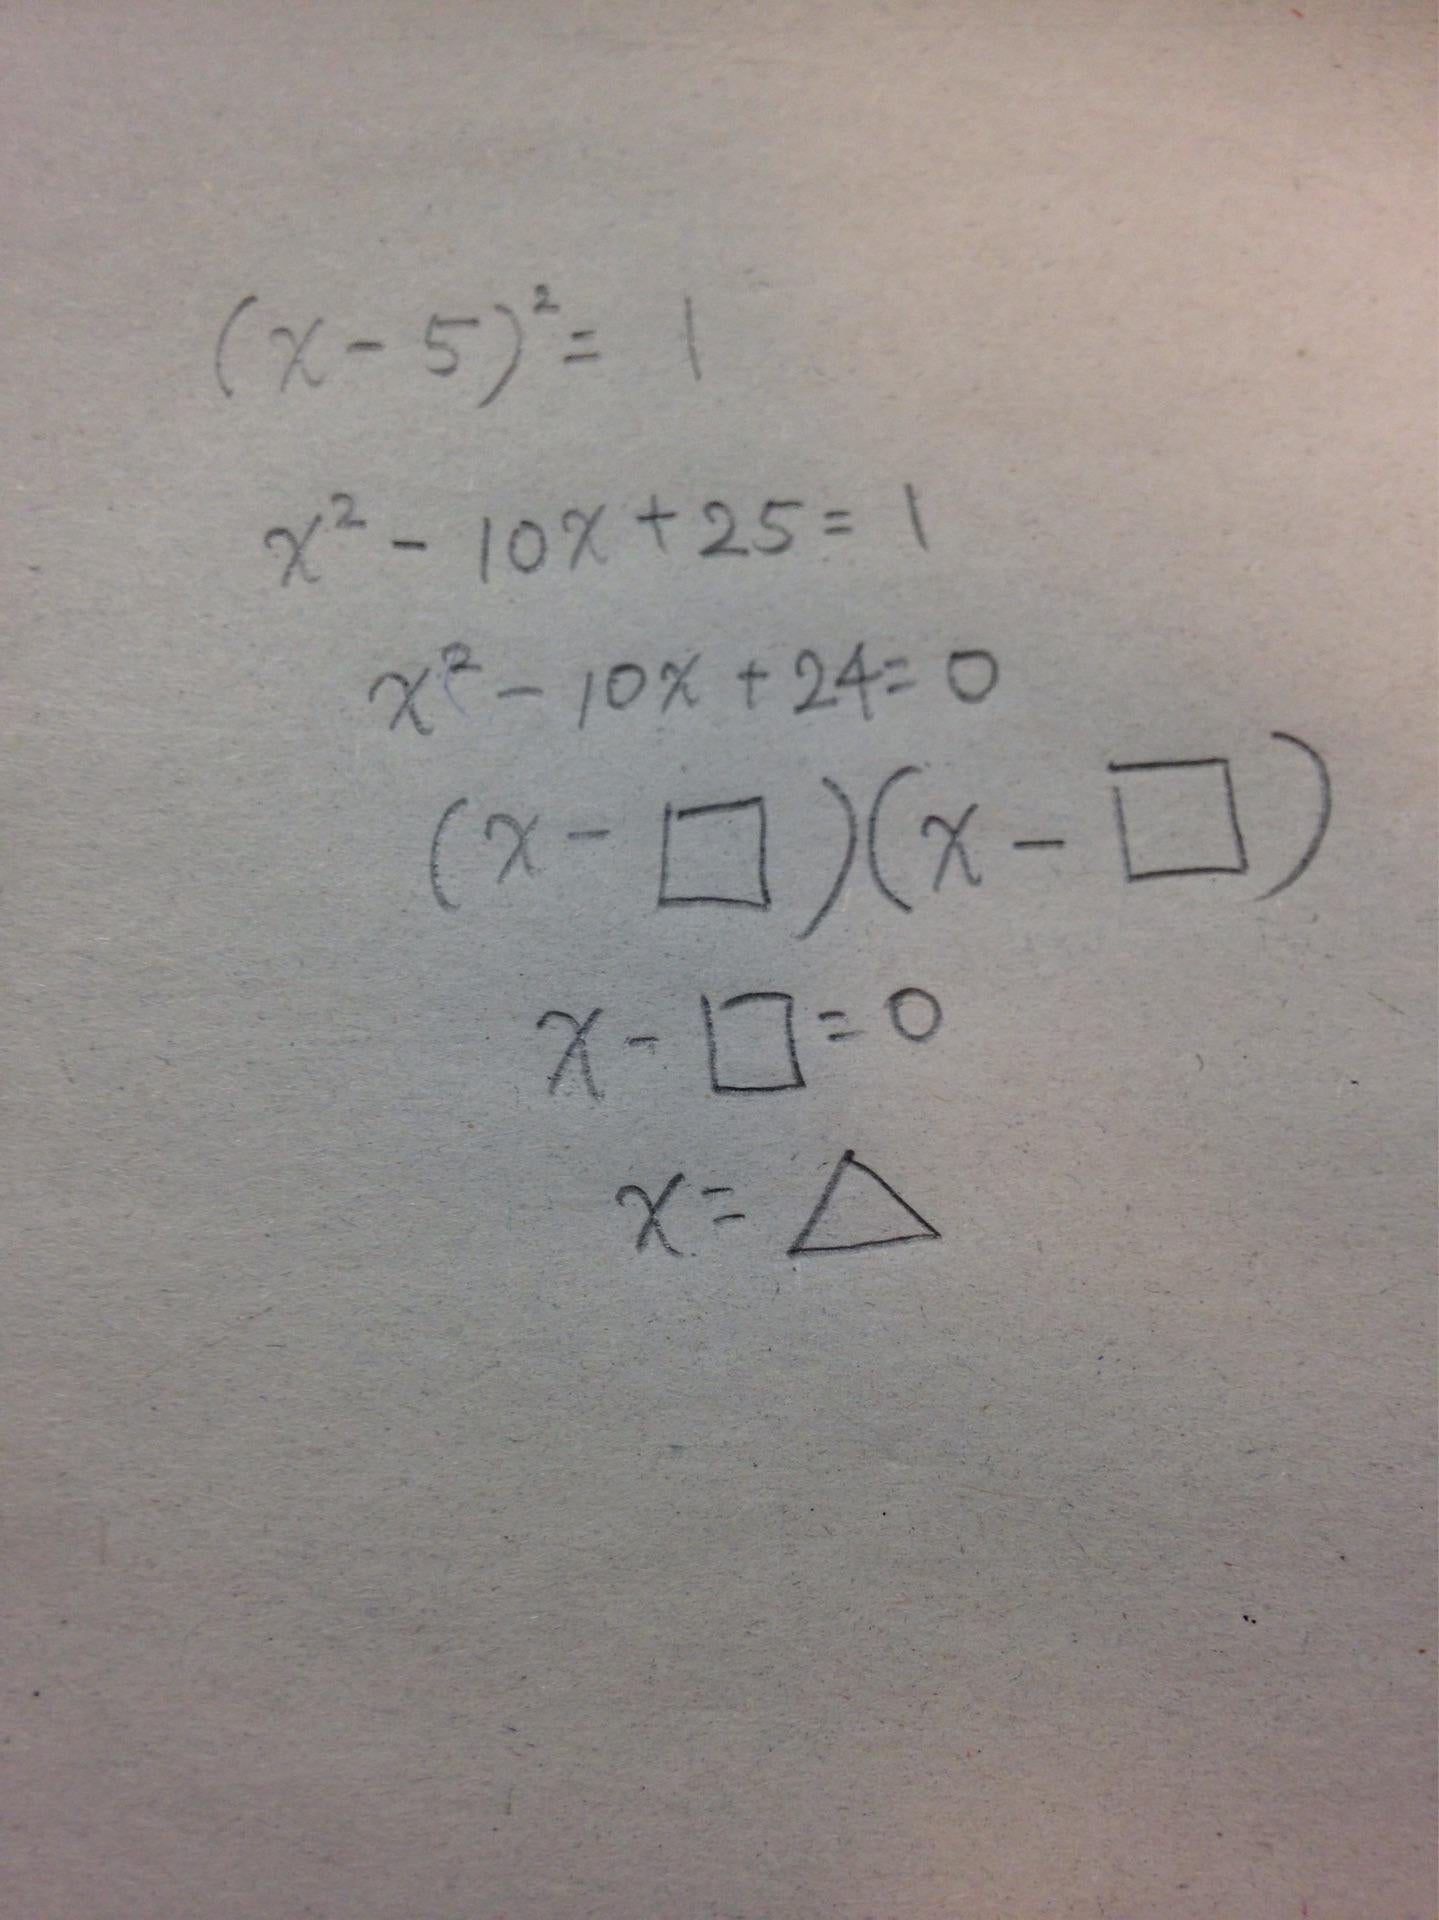 (x - 5)² = 1
x² - 10x + 25 = 1
x² - 10x + 24 = 0
(x - □)(x - □)
x - □ = 0
x = △